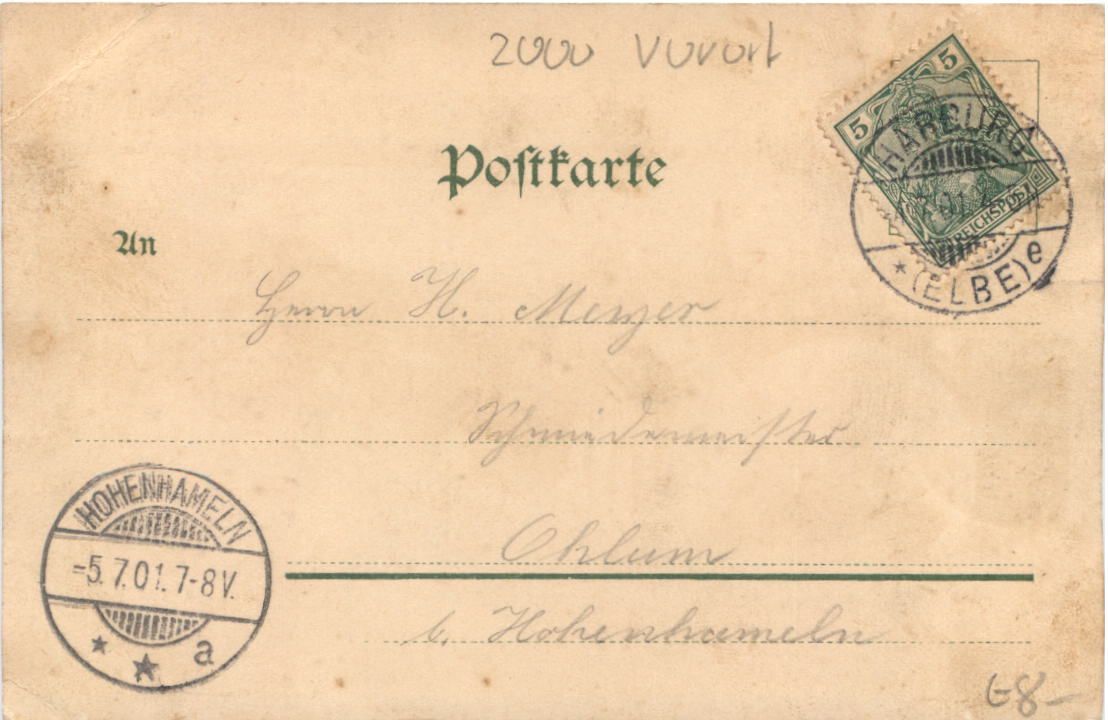 2000 Vorort
5
5
REICHSPOST
HARBURG
7.01.
* (ELBE) e
Postkarte
An
Herrn H. Meyer
Schmiedemeister
Ohlum
b. Hohenhameln
HOHENHAMELN
-5.7.01.7-8V.
* * a
8-